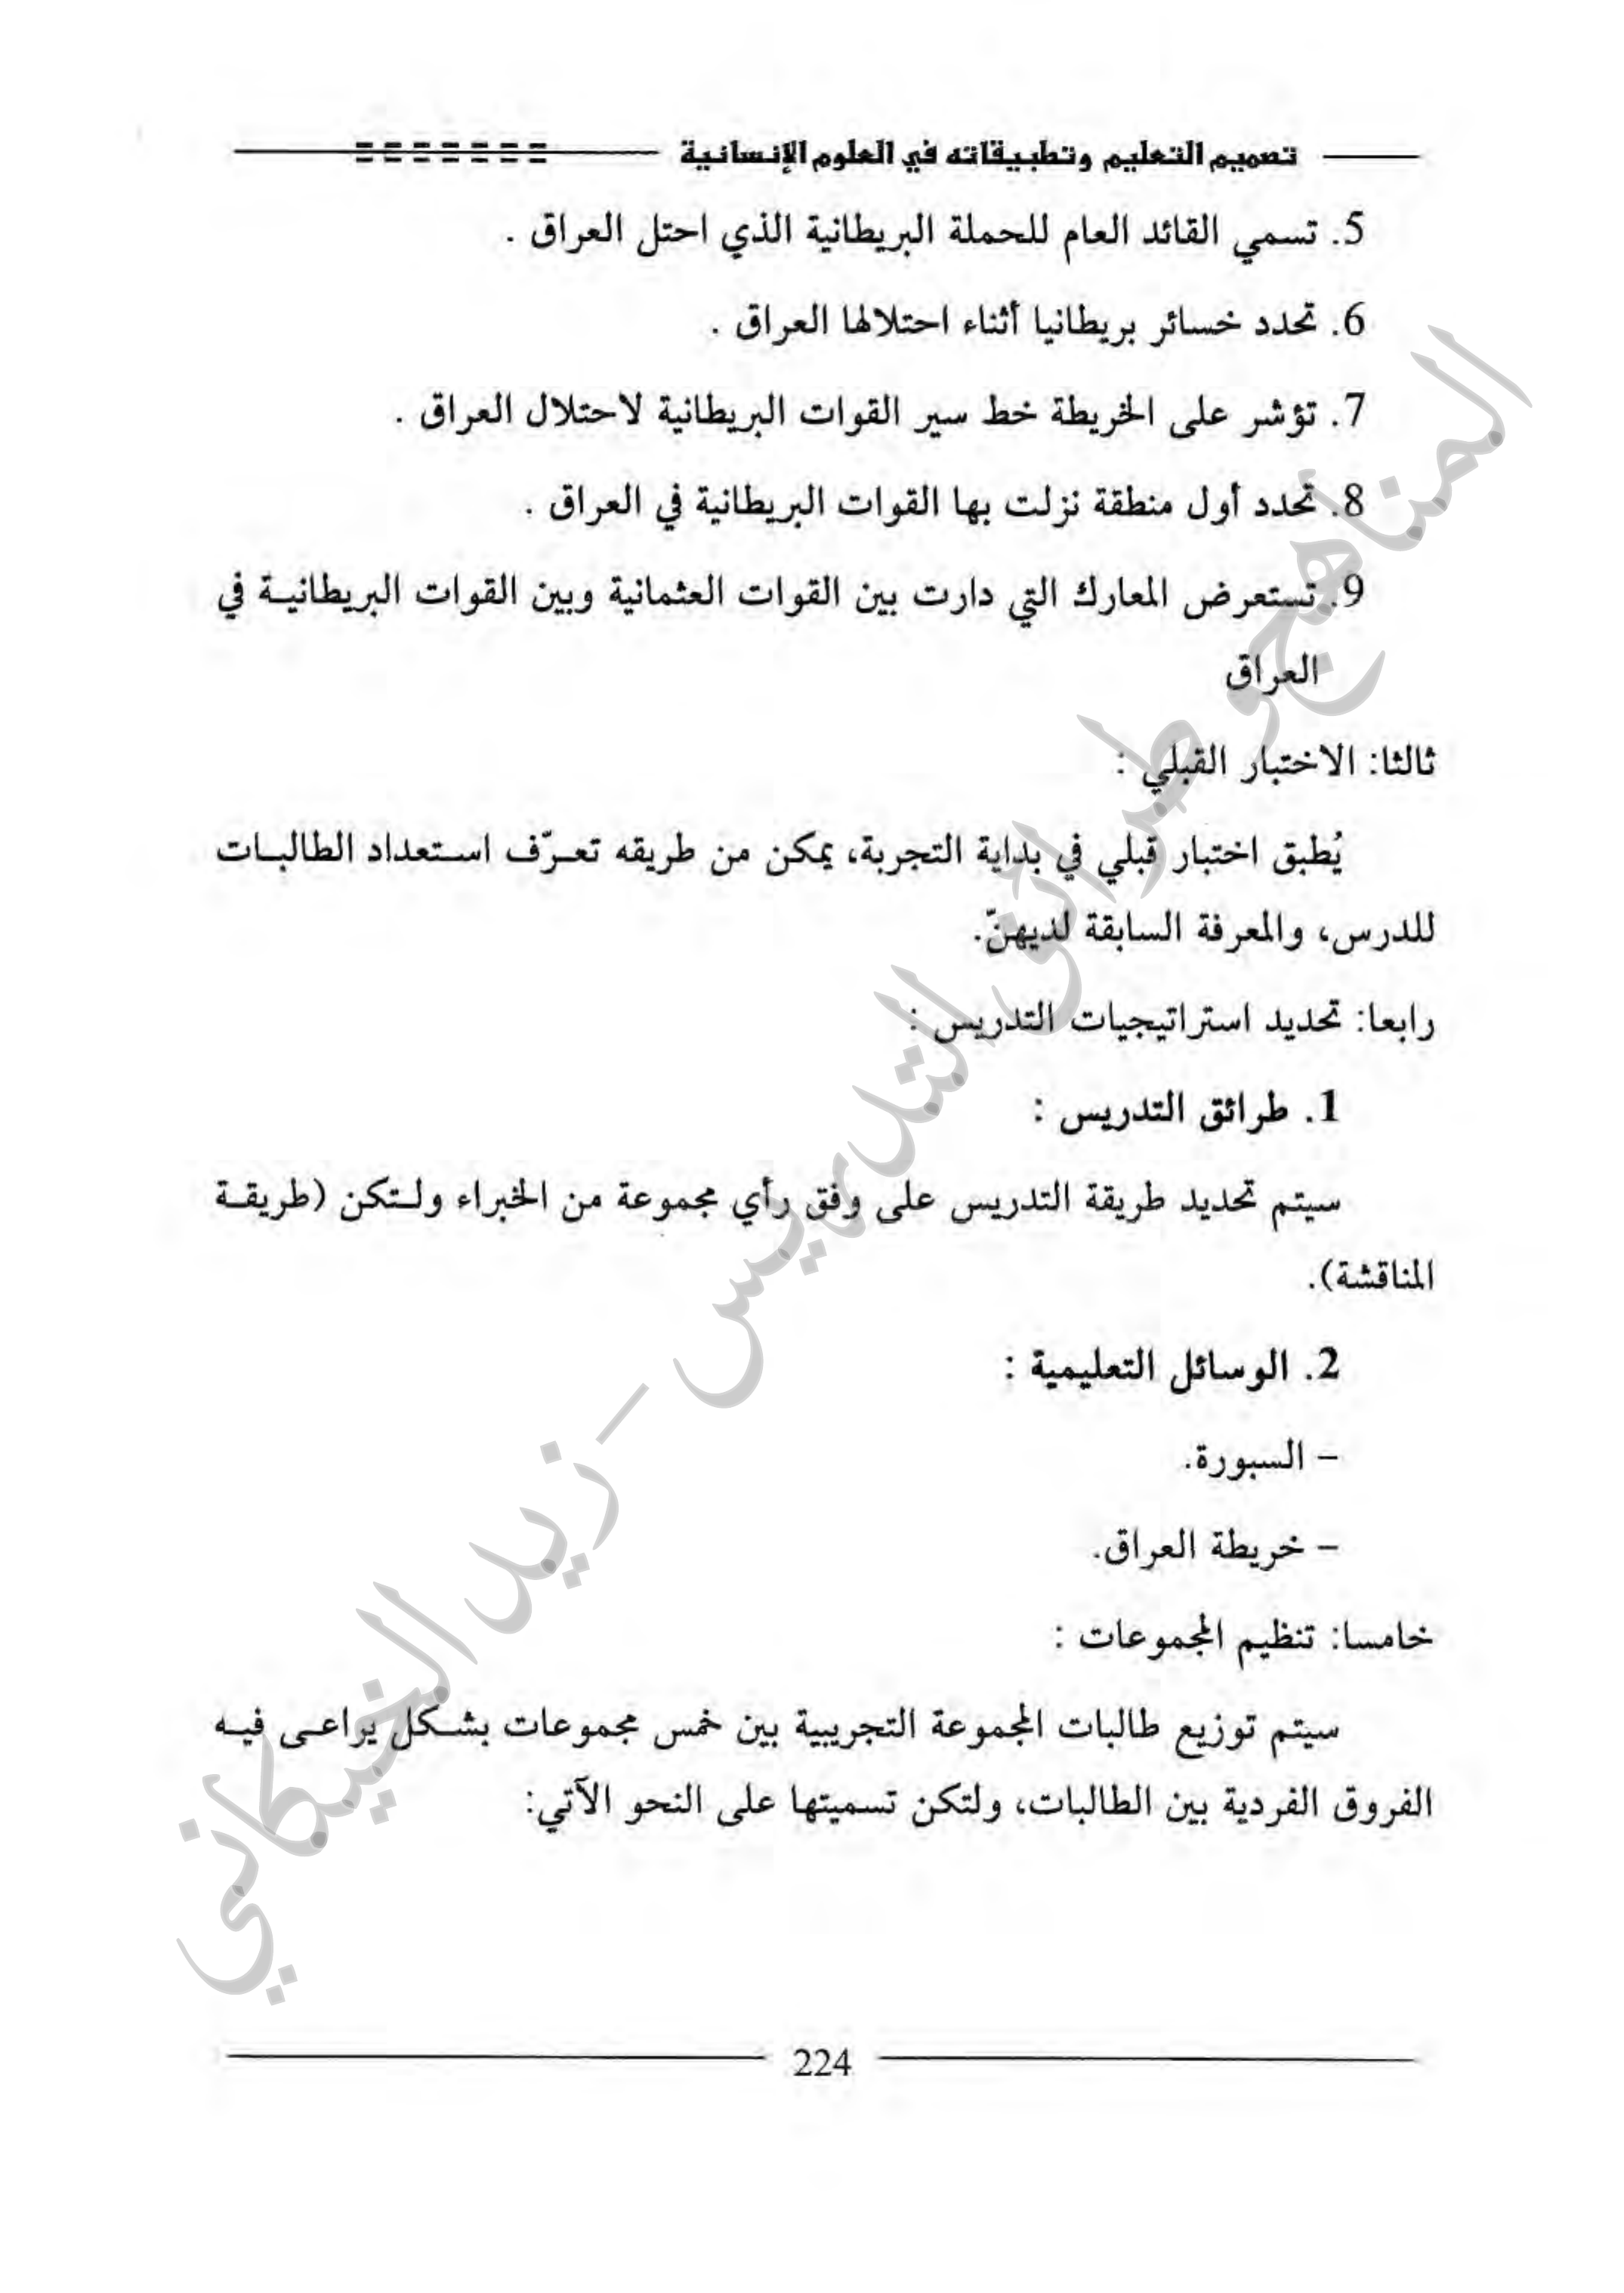 تصميم التعليم وتطبيقاته في العلوم الإنسانية
5. تسمي القائد العام للحملة البريطانية الذي احتل العراق .
6. تحدد خسائر بريطانيا أثناء احتلالها العراق .
7. تؤشر على الخريطة خط سير القوات البريطانية لاحتلال العراق .
8. تحدد أول منطقة نزلت بها القوات البريطانية في العراق .
9. تستعرض المعارك التي دارت بين القوات العثمانية وبين القوات البريطانية في
العراق
ثالثا: الاختبار القبلي :
يُطبق اختبار قبلي في بداية التجربة، يمكن من طريقه تعرّف استعداد الطالبات
للدرس، والمعرفة السابقة لديهنّ.
رابعا: تحديد استراتيجيات التدريس :
1. طرائق التدريس :
سيتم تحديد طريقة التدريس على وفق رأي مجموعة من الخبراء ولتكن (طريقة
المناقشة).
2. الوسائل التعليمية :
– السبورة.
– خريطة العراق.
خامسا: تنظيم المجموعات :
سيتم توزيع طالبات المجموعة التجريبية بين خمس مجموعات بشكل يراعى فيه
الفروق الفردية بين الطالبات، ولتكن تسميتها على النحو الآتي:
224
المناهج وطرائق التدريس – زيد الخيكاني